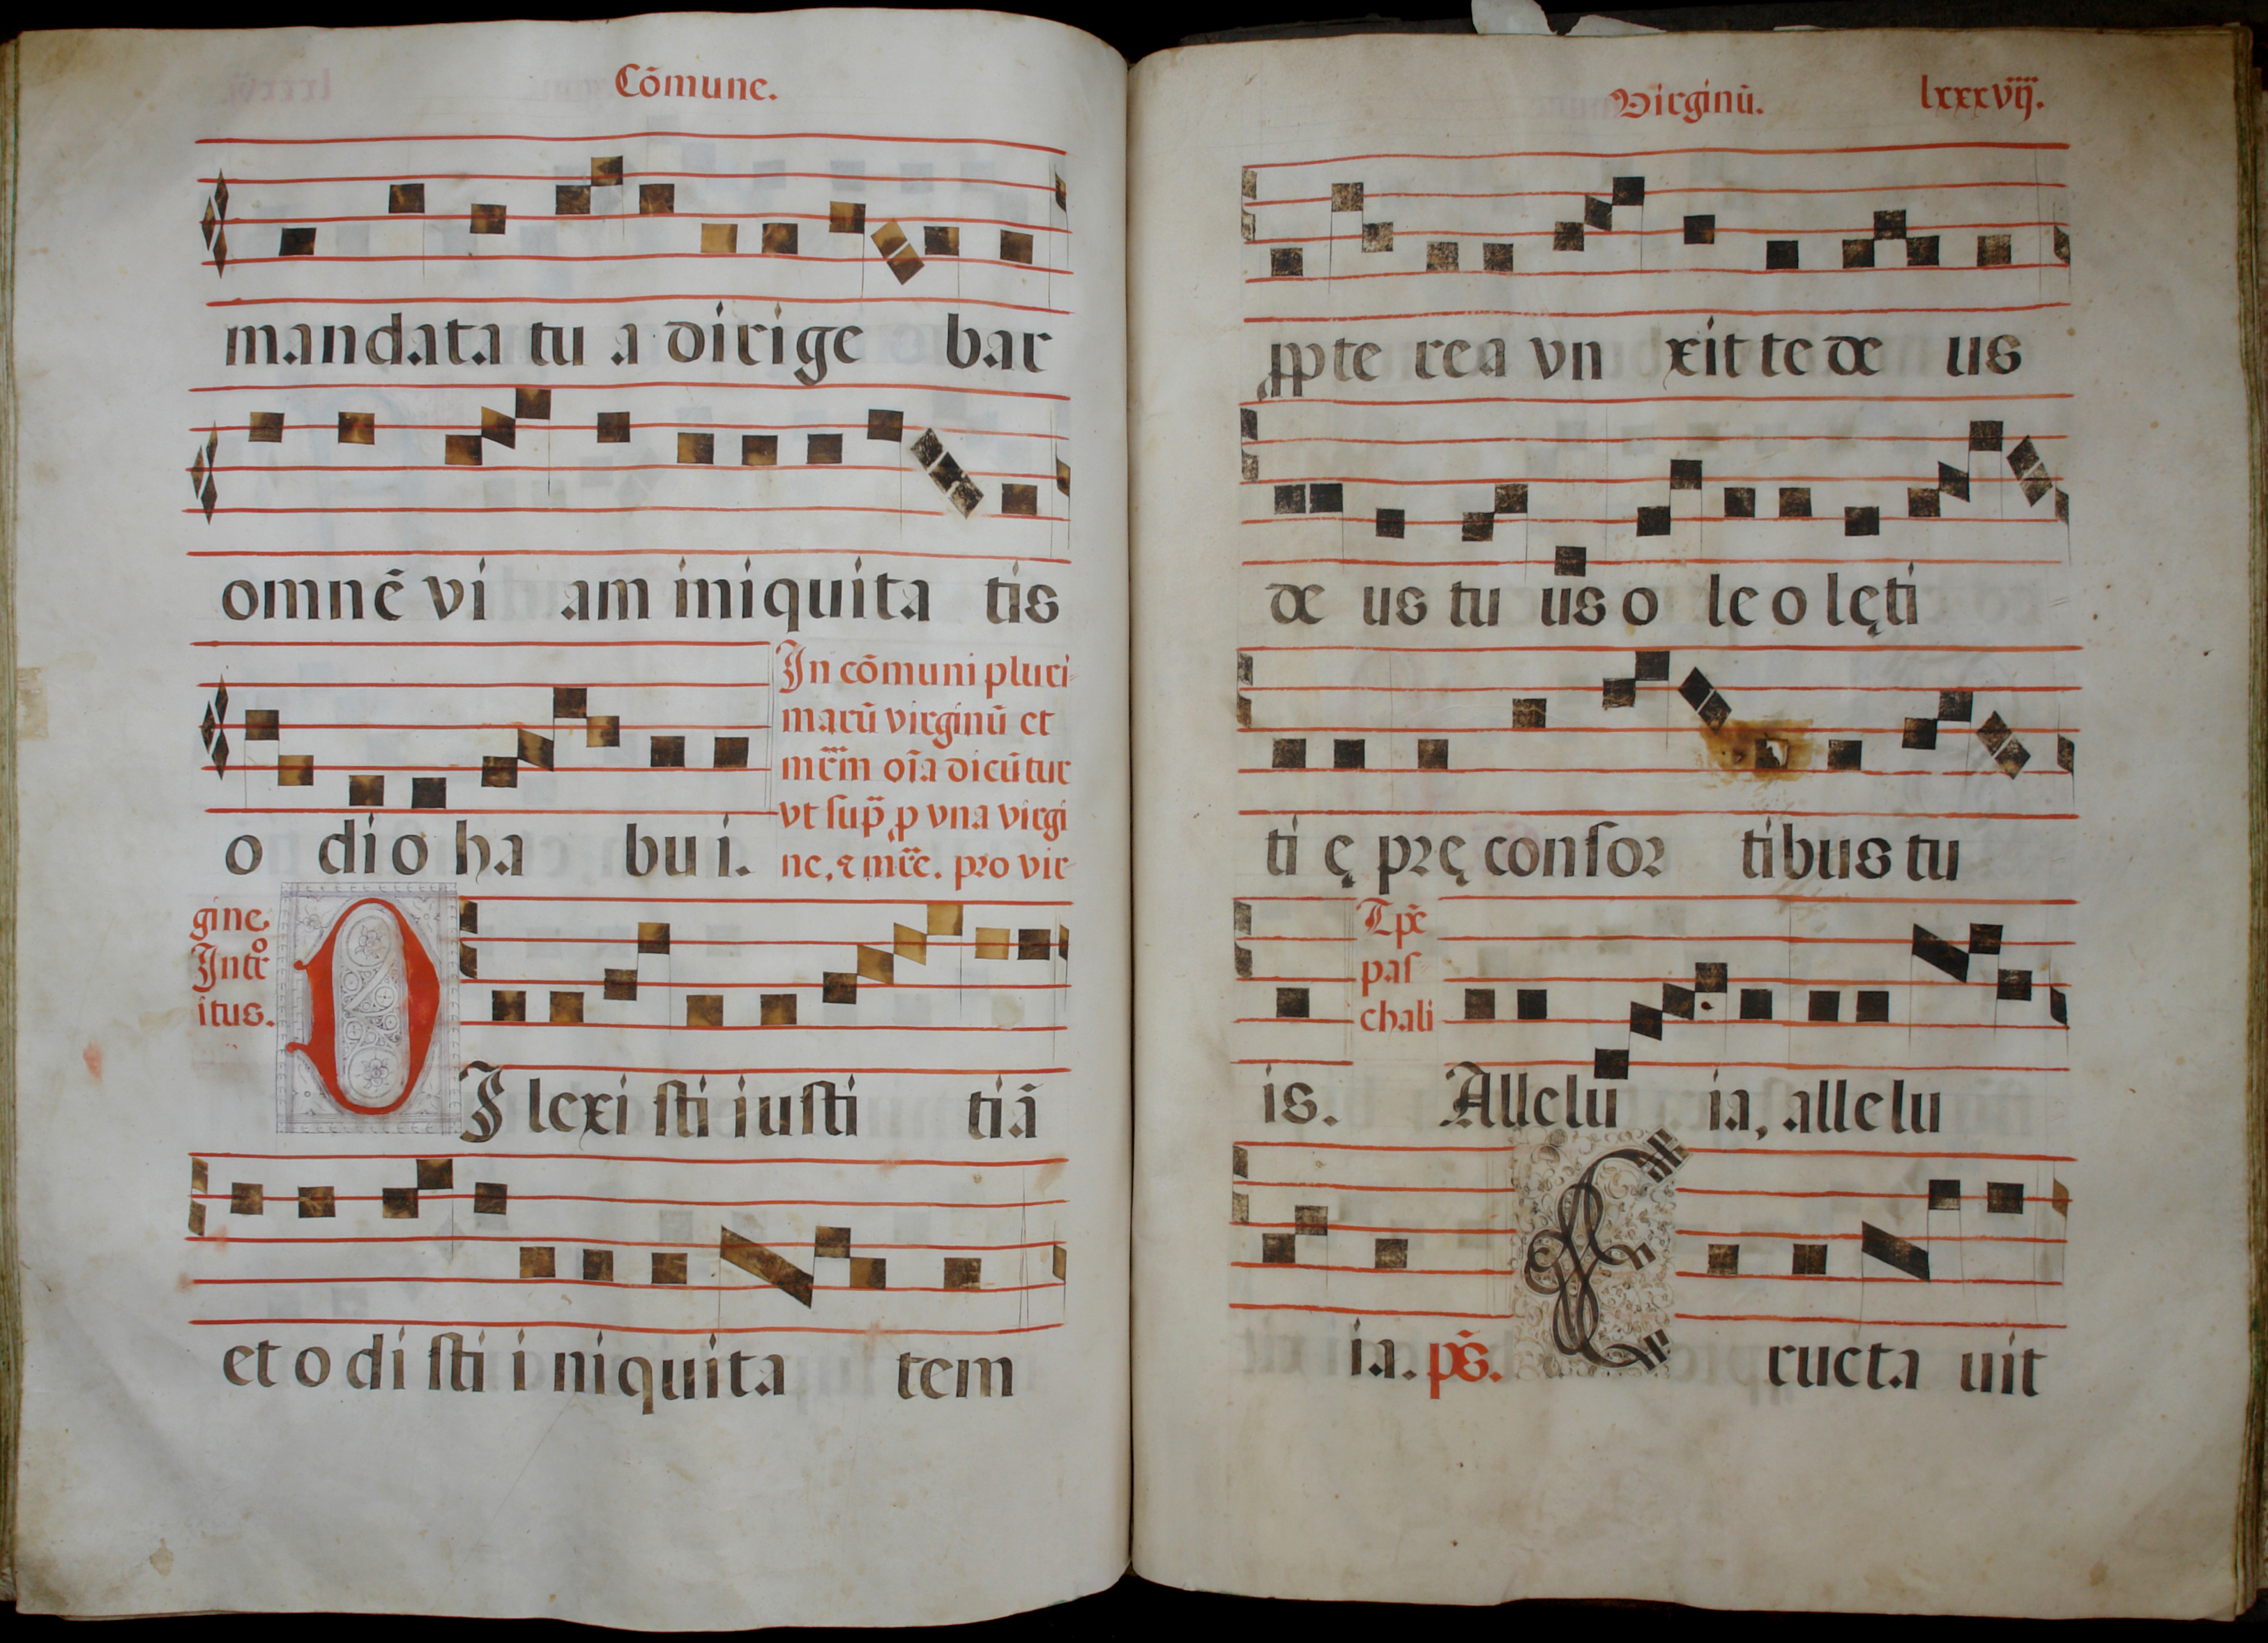 Cõmune.
mandata tu a dirige bar
omnẽ vi am iniquita tis
o dio ha bu i.
In cõmuni pluri-
marũ virginũ et
mr̃m oĩa dicũtur
vt sup̃ ꝑ vna virgi
ne, ⁊ mr̃e. pro vir-
gine.
Intr̃o
itus.
DI lexi sti iusti tiã
et o di sti i niquita tem
Virginũ. lxxxvij.
ꝓpte rea vn xit te de us
de us tu us o le o lęti
ti ę prę consor tibus tu
Tp̃e
pas
chali
is. Allelu ia, allelu
ia. ps̃. E ructa uit